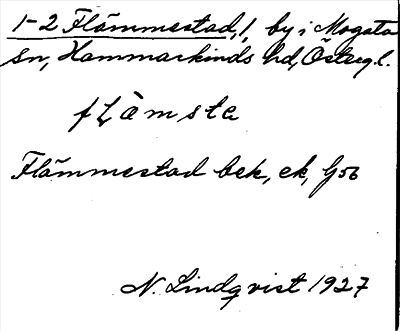 1-2 Flämmestad, 1, by i Mogata
sn, Hammarkinds hd, Östergl.
flämsta
Flämmestad bek, ek, G56
N. Lindqvist 1927